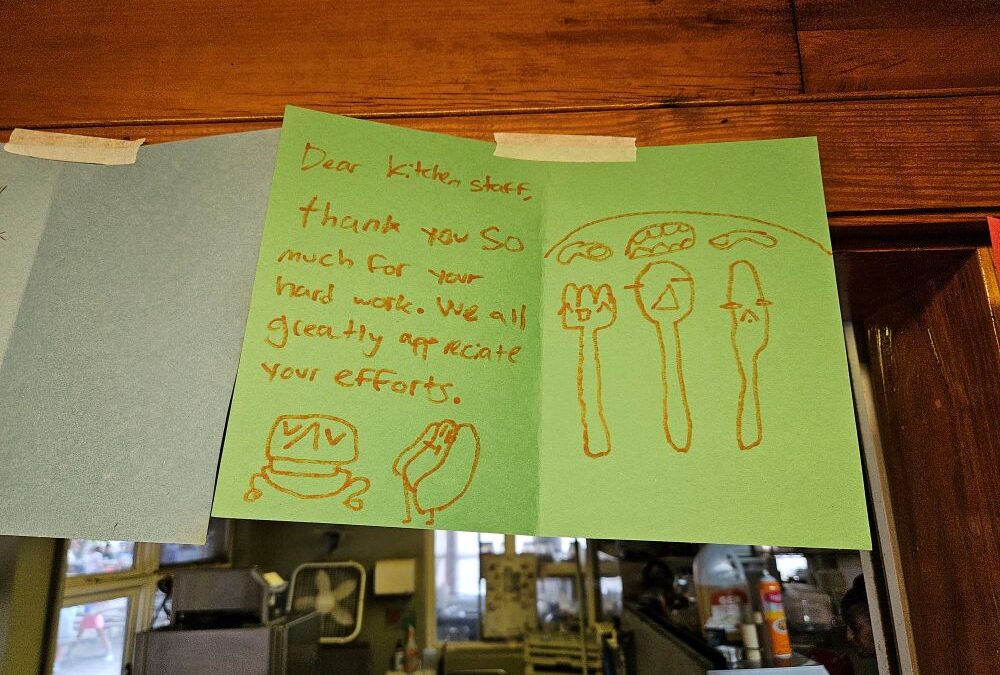 Dear kitchen staff,
thank you so
much for your
hard work. We all
greatly appreciate
your efforts.